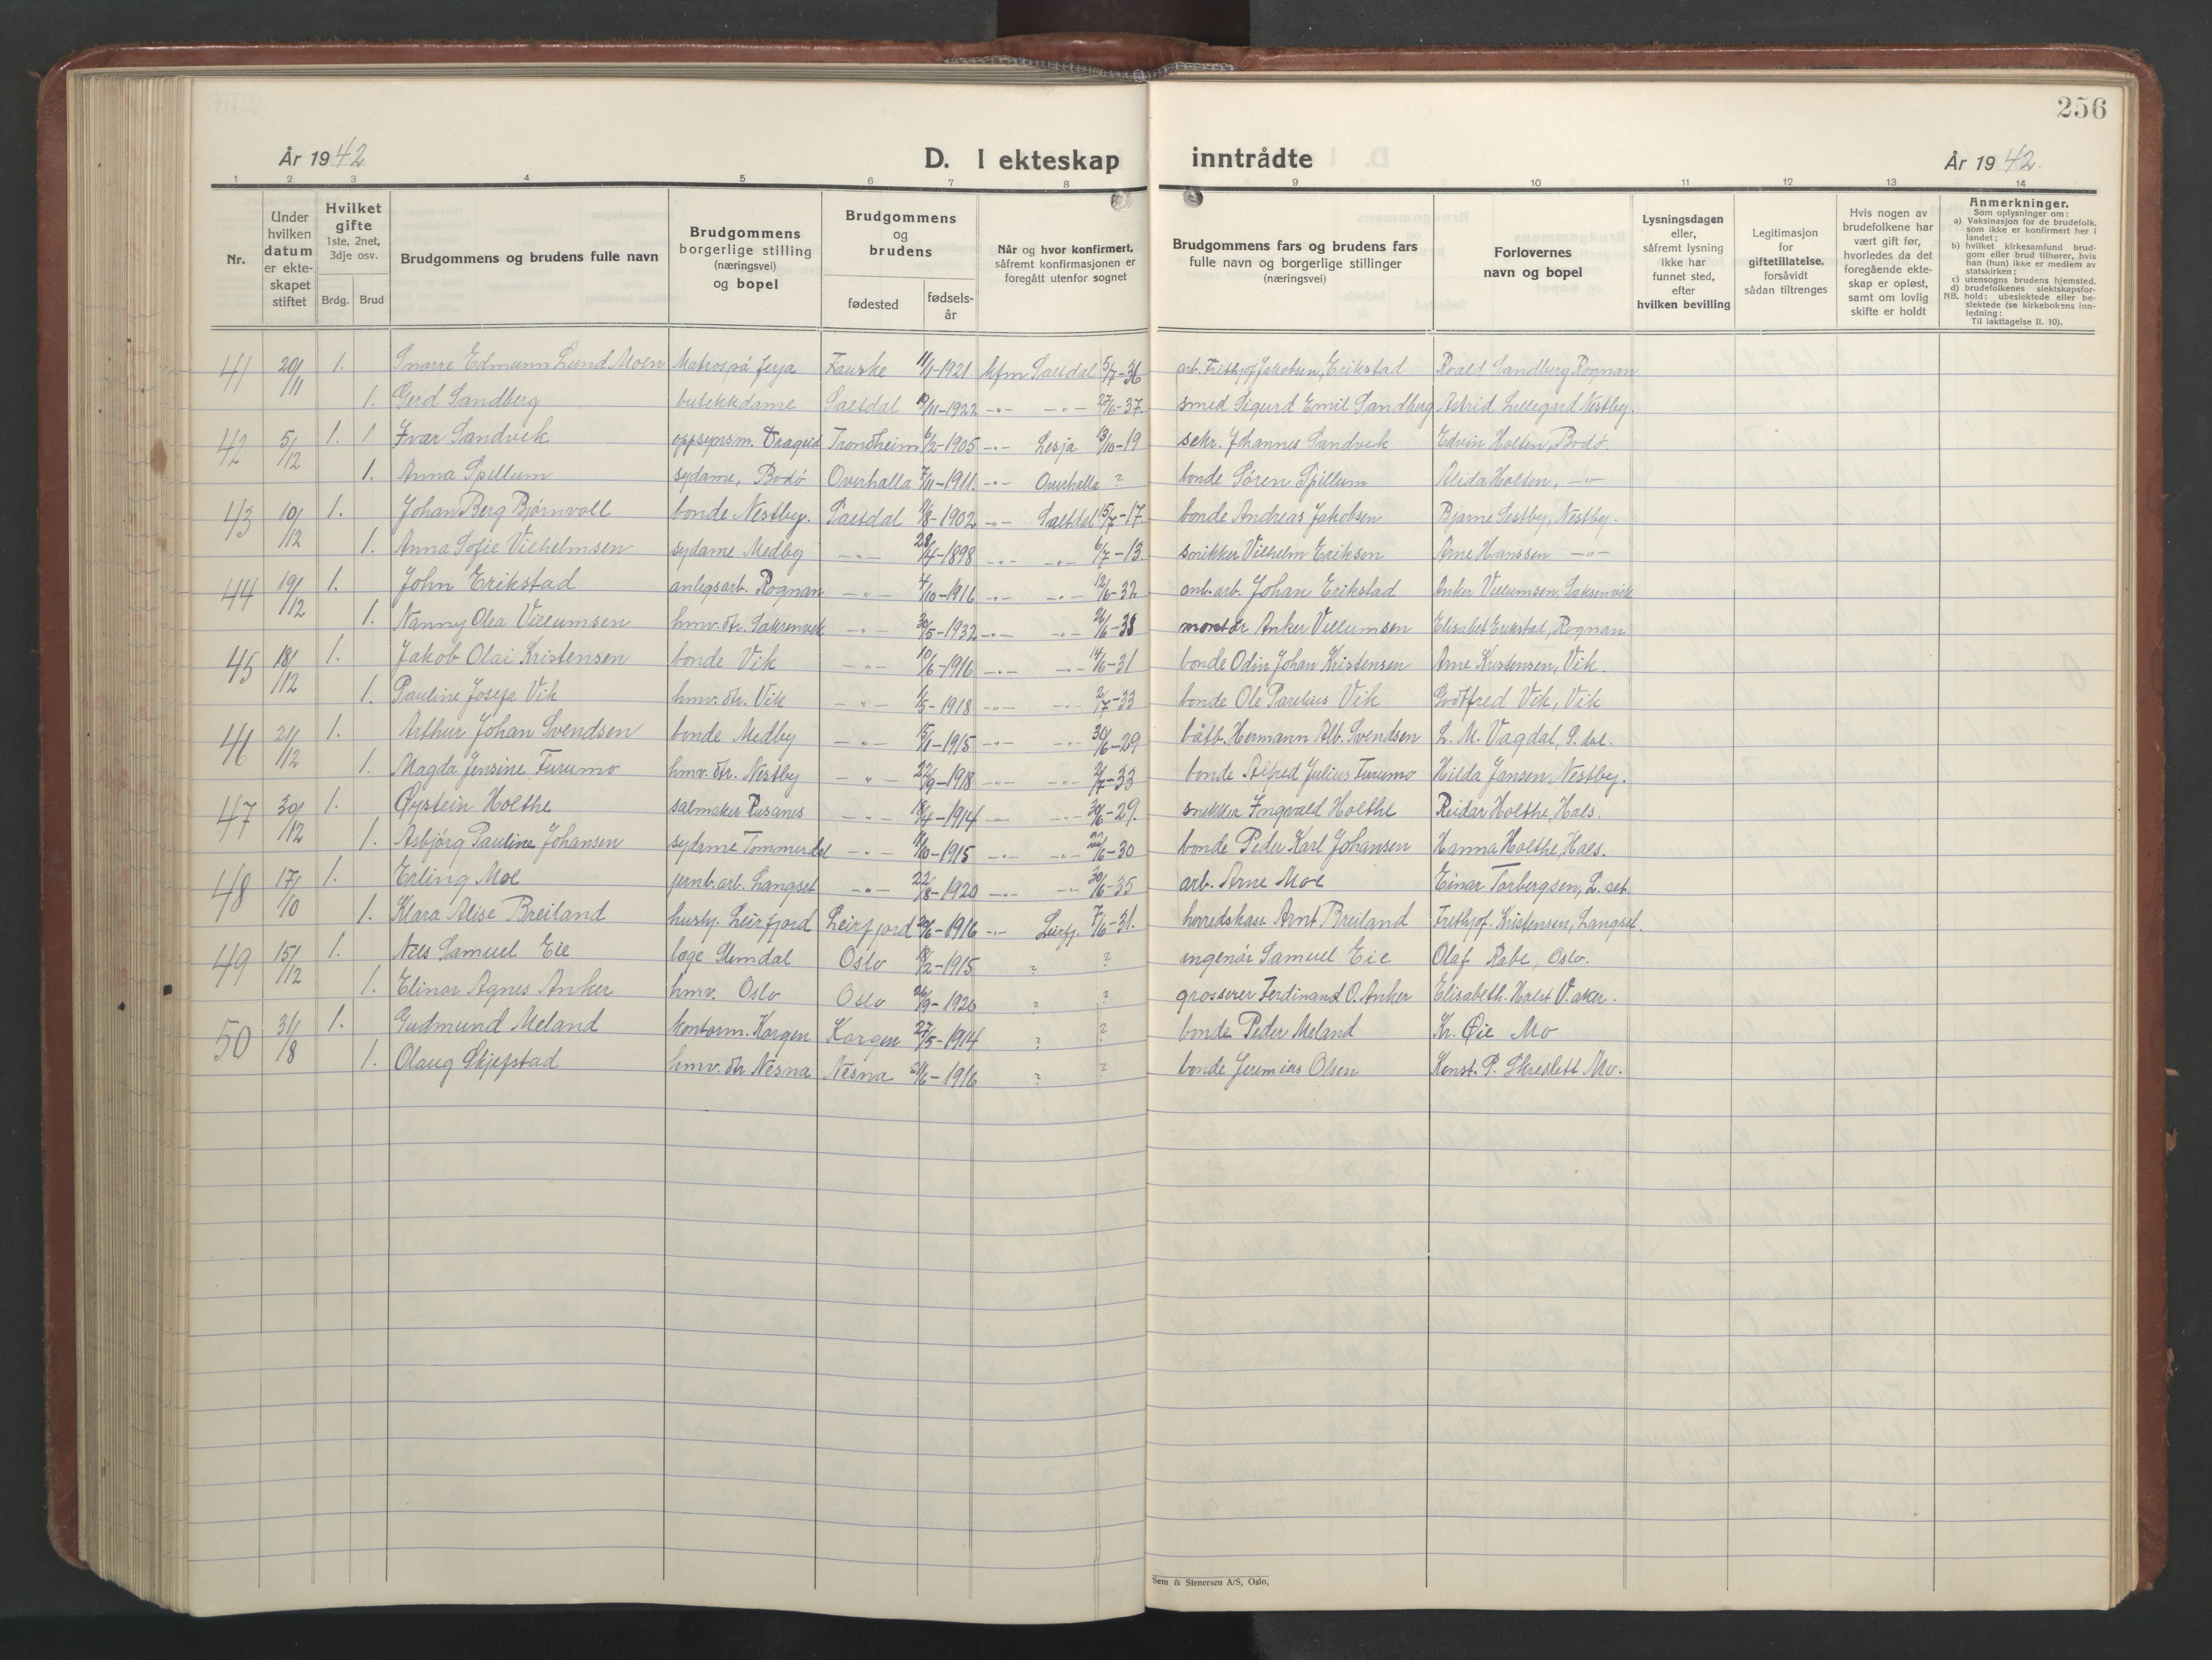 256
År 1942
D. I ekteskap inntrådte
År 1942.
1 2 3 4 5 6 7 8 9 10 11 12 13 14
Nr.
Under hvilken datum er ekteskapet stiftet
Hvilket gifte 1ste, 2net, 3dje osv.
Brdg. Brud
Brudgommens og brudens fulle navn
Brudgommens borgerlige stilling (næringsvei) og bopel
Brudgommens og brudens
fødested fødsels-år
Når og hvor konfirmert, såfremt konfirmasjonen er foregått utenfor sognet
Brudgommens fars og brudens fars fulle navn og borgerlige stillinger (næringsvei)
Forlovernes navn og bopel
Lysningsdagen eller, såfremt lysning ikke har funnet sted, efter hvilken bevilling
Legitimasjon for giftetillatelse, forsåvidt sådan tiltrenges
Hvis nogen av brudefolkene har vært gift før, hvorledes da det foregående ekteskap er opløst, samt om lovlig skifte er holdt
Anmerkninger.
Som oplysninger om:
a) Vaksinasjon for de brudefolk, som ikke er konfirmert her i landet;
b) hvilket kirkesamfund brudgom eller brud tilhører, hvis han (hun) ikke er medlem av statskirken;
c) utensogns brudens hjemsted.
d) brudefolkenes slektskapsforhold: ubeslektede eller beslektede (se kirkebokens innledning:
NB. Til iakttagelse II. 10).
41 20/11 1. Snorre Edmunn Lund Moen Matros på ferja Fauske 11/1-1921 kfm Saltdal 5/7-36 arb. Frithjof Jakobsen, Erikstad Roald Sandberg Rognan
1. Gerd Sandberg butikkdame Saltdal 12/11-1922 -"- -"- 27/6-37 smed Sigurd Emil Sandberg Astrid Lillegard Nestby.
42 5/12 1. 1 Ivar Sandvik oppsynsm. Drageid Trondheim 6/2-1905 -"- Lesja 13/10-19 sekr. Johannes Sandvik Edvin Holten, Bodø.
1. Anna Spillum sydame, Bodø Overhalla 7/11-1911. -"- Overhalla ? bonde Søren Spillum Alida Holten, -"-
43 10/12 1. Johan Berg Bjørnvoll bonde Nestby. Saltdal 11/8-1902 -"- Saltdal 15/7-17. bonde Andreas Jakobsen Bjarne Sestby, Nestby.
1. Anna Sofie Vilhelmsen sydame Medby -"- 28/4-1898 -"- -"- 6/7-13. snikker Vilhelm Eriksen Arne Hanssen -"-
44 19/12 1. John Erikstad anlegsarb. Rognan -"- 4/10-1916 -"- -"- 12/6-32 anl.arb. Johan Erikstad Anker Villumsen, Saksenvik
1. Nanny Olea Villumsen hmv. dtr. Saksenvik -"- 30/5-1932 -"- -"- 26/6-38 montør Anker Villumsen Elisabet Erikstad, Rognan
45 18/12 1. Jakob Olai Kristensen bonde Vik -"- 10/6-1916 -"- -"- 14/6-31 bonde Odin Johan Kristensen Arne Kristensen, Vik.
1. Pauline Josefa Vik hmv. dtr. Vik -"- 1/5-1918 -"- -"- 2/7-33 bonde Ole Parelius Vik Godtfred Vik, Vik
46 21/12 1. Arthur Johan Svendsen bonde Medby -"- 15/1-1915 -"- -"- 30/6-29 båtb. Hermann Alb. Svendsen L. M. Vagdal, S.dal.
1. Magda Jensine Furumo hmv. dtr. Nestby -"- 22/9-1918 -"- -"- 2/7-33 bonde Alfred Julius Furumo Hilda Jansen, Nestby.
47 30/12 1. Øystein Holthe salmaker Rusanes -"- 18/4-1914 -"- -"- 30/6-29. snekker Ingvald Holthe Reidar Holthe, Hals.
1. Asbjørg Pauline Johansen sydame Tømmerdal -"- 11/10-1915 -"- -"- 22/6-30 bonde Peder Karl Johansen Hanna Holthe, Hals.
48 17/10 1. Erling Moe jernb.arb. Langset -"- 22/8-1920 -"- -"- 30/6-35 arb. Arne Moe Einar Torbergsen, L.set.
1. Klara Alise Breiland husbj. Leirfjord Leirfjord 26/6-1916 -"- Leirfj. 7/6-31. herredskass. Arnt Breiland Frithjof. Kristensen, Langset.
49 15/12 1. Nils Samuel Eie lege Slemdal Oslo 18/2-1915 ? ? ingeniør Samuel Eie Olaf Rabe, Oslo.
1. Elinor Agnes Anker hmv. Oslo Oslo 26/9-1920 ? ? grosserer Ferdinand O. Anker Elisabeth. Holst V.aker.
50 31/8 1. Gudmund Meland kontorm. Korgen Korgen 27/5-1914 ? ? bonde Peder Meland Kr. Øie Mo
1. Olaug Skjefstad hmv. dtr Nesna Nesna 21/6-1916 ? ? bonde Jeremias Olsen Konst. P. Hreslett Mo.
Sem & Stenersen A/S, Oslo.